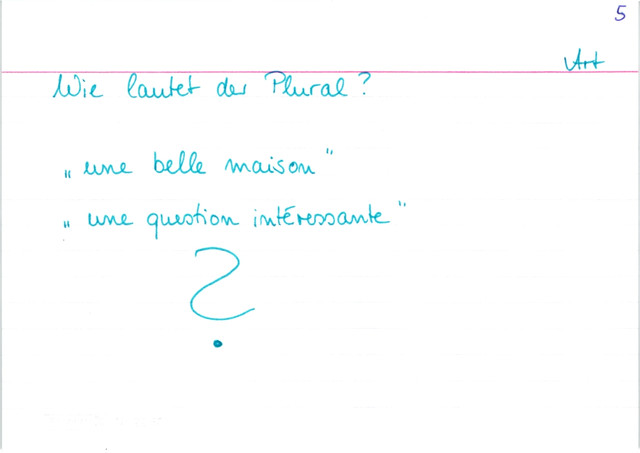 5
Art
Wie lautet der Plural?
„une belle maison"
„une question intéressante"
?